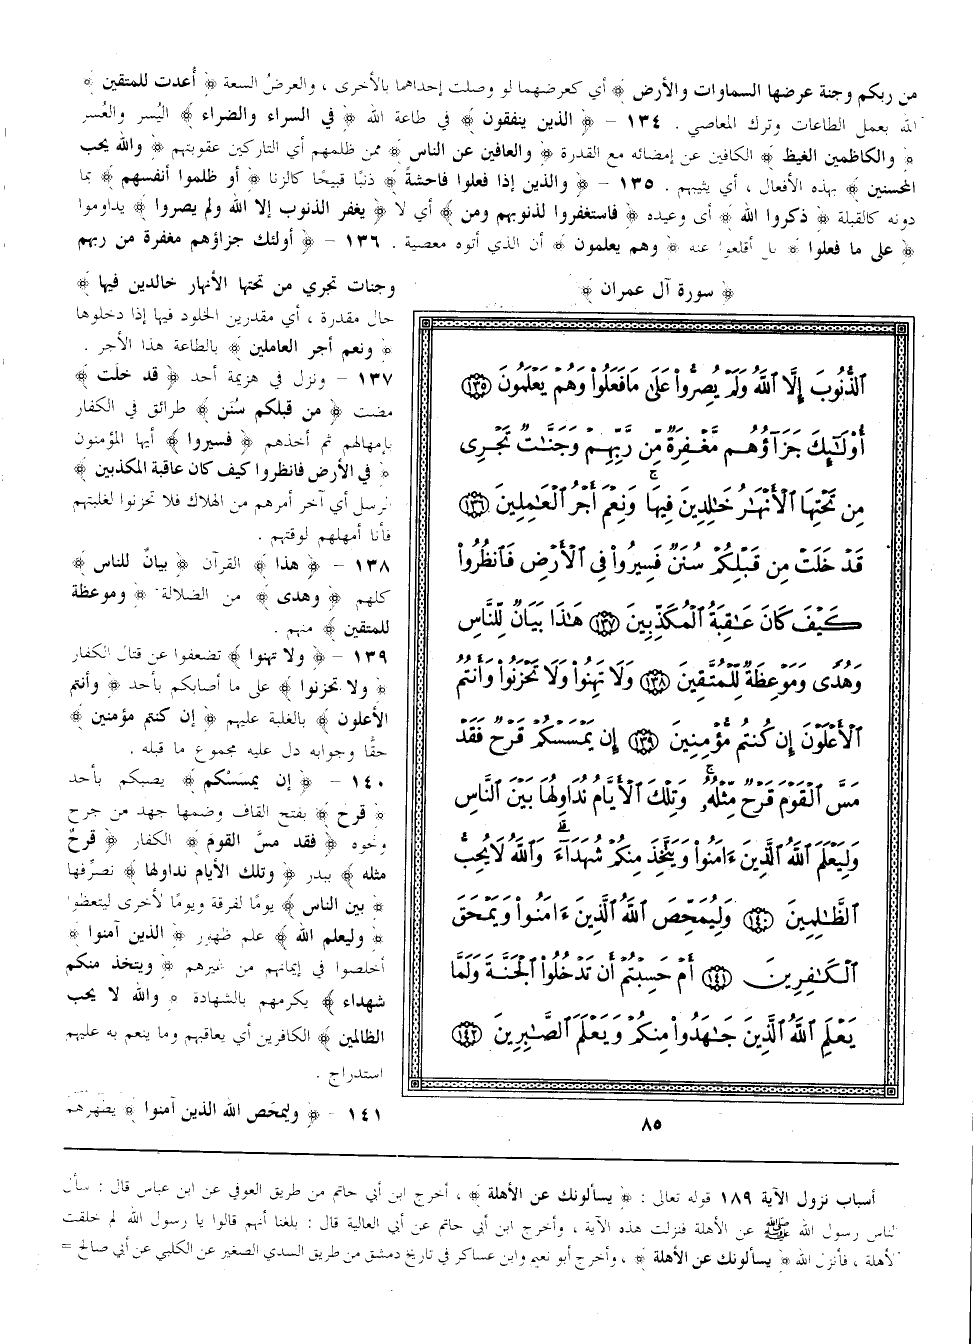 من ربكم وجنة عرضها السماوات والأرض ﴾ أي كعرضهما لو وصلت إحداهما بالأخرى ، والعرضُ السعة ﴿ أُعدت للمتقين ﴾
الله بعمل الطاعات وترك المعاصي . ١٣٤ - ﴿ الذين ينفقون ﴾ في طاعة الله ﴿ في السراء والضراء ﴾ اليُسر والعُسر
﴿ والكاظمين الغيظ ﴾ الكافين عن إمضائه مع القدرة ﴿ والعافين عن الناس ﴾ ممن ظلمهم أي التاركين عقوبتهم ﴿ والله يحب
المحسنين ﴾ بهذه الأفعال ، أي يثيبهم . ١٣٥ - ﴿ والذين إذا فعلوا فاحشةً ﴾ ذنبًا قبيحًا كالزنا ﴿ أو ظلموا أنفسهم ﴾ بما
دونه كالقبلة ﴿ ذكروا الله ﴾ أي وعيده ﴿ فاستغفروا لذنوبهم ومن ﴾ أي لا ﴿ يغفر الذنوب إلا الله ولم يصروا ﴾ يداوموا
﴿ على ما فعلوا ﴾ بل أقلعوا عنه ﴿ وهم يعلمون ﴾ أن الذي أتوه معصية . ١٣٦ - ﴿ أولئك جزاؤهم مغفرة من ربهم
﴿ سورة آل عمران ﴾
ٱلذُّنُوبَ إِلَّا ٱللَّهُ وَلَمْ يُصِرُّوا۟ عَلَىٰ مَا فَعَلُوا۟ وَهُمْ يَعْلَمُونَ ١٣٥
أُو۟لَٰٓئِكَ جَزَآؤُهُم مَّغْفِرَةٌ مِّن رَّبِّهِمْ وَجَنَّٰتٌ تَجْرِى
مِن تَحْتِهَا ٱلْأَنْهَٰرُ خَٰلِدِينَ فِيهَا ۚ وَنِعْمَ أَجْرُ ٱلْعَٰمِلِينَ ١٣٦
قَدْ خَلَتْ مِن قَبْلِكُمْ سُنَنٌ فَسِيرُوا۟ فِى ٱلْأَرْضِ فَٱنظُرُوا۟
كَيْفَ كَانَ عَٰقِبَةُ ٱلْمُكَذِّبِينَ ١٣٧ هَٰذَا بَيَانٌ لِّلنَّاسِ
وَهُدًى وَمَوْعِظَةٌ لِّلْمُتَّقِينَ ١٣٨ وَلَا تَهِنُوا۟ وَلَا تَحْزَنُوا۟ وَأَنتُمُ
ٱلْأَعْلَوْنَ إِن كُنتُم مُّؤْمِنِينَ ١٣٩ إِن يَمْسَسْكُمْ قَرْحٌ فَقَدْ
مَسَّ ٱلْقَوْمَ قَرْحٌ مِّثْلُهُۥ ۚ وَتِلْكَ ٱلْأَيَّامُ نُدَاوِلُهَا بَيْنَ ٱلنَّاسِ
وَلِيَعْلَمَ ٱللَّهُ ٱلَّذِينَ ءَامَنُوا۟ وَيَتَّخِذَ مِنكُمْ شُهَدَآءَ ۗ وَٱللَّهُ لَا يُحِبُّ
ٱلظَّٰلِمِينَ ١٤٠ وَلِيُمَحِّصَ ٱللَّهُ ٱلَّذِينَ ءَامَنُوا۟ وَيَمْحَقَ
ٱلْكَٰفِرِينَ ١٤١ أَمْ حَسِبْتُمْ أَن تَدْخُلُوا۟ ٱلْجَنَّةَ وَلَمَّا
يَعْلَمِ ٱللَّهُ ٱلَّذِينَ جَٰهَدُوا۟ مِنكُمْ وَيَعْلَمَ ٱلصَّٰبِرِينَ ١٤٢
٨٥
وجنات تجري من تحتها الأنهار خالدين فيها ﴾
حال مقدرة ، أي مقدرين الخلود فيها إذا دخلوها
﴿ ونعم أجر العاملين ﴾ بالطاعة هذا الأجر .
١٣٧ - ونزل في هزيمة أحد ﴿ قد خلت ﴾
مضت ﴿ من قبلكم سُنَن ﴾ طرائق في الكفار
بإمهالهم ثم أخذهم ﴿ فسيروا ﴾ أيها المؤمنون
﴿ في الأرض فانظروا كيف كان عاقبة المكذبين ﴾
الرسل أي آخر أمرهم من الهلاك فلا تحزنوا لغلبتهم
فأنا أمهلهم لوقتهم .
١٣٨ - ﴿ هذا ﴾ القرآن ﴿ بيانٌ للناس ﴾
كلهم ﴿ وهدى ﴾ من الضلالة ﴿ وموعظة
للمتقين ﴾ منهم .
١٣٩ - ﴿ ولا تهنوا ﴾ تضعفوا عن قتال الكفار
﴿ ولا تحزنوا ﴾ على ما أصابكم بأحد ﴿ وأنتم
الأعلون ﴾ بالغلبة عليهم ﴿ إن كنتم مؤمنين ﴾
حقًّا وجوابه دل عليه مجموع ما قبله .
١٤٠ - ﴿ إن يمسَسْكم ﴾ يصبكم بأحد
﴿ قرح ﴾ بفتح القاف وضمها جهد من جرح
ونحوه ﴿ فقد مسَّ القومَ ﴾ الكفار ﴿ قرحٌ
مثله ﴾ ببدر ﴿ وتلك الأيام نداولها ﴾ نصرِّفها
﴿ بين الناس ﴾ يومًا لفرقة ويومًا لأخرى ليتعظوا
﴿ وليعلم الله ﴾ علم ظهور ﴿ الذين آمنوا ﴾
أخلصوا في إيمانهم من غيرهم ﴿ ويتخذ منكم
شهداء ﴾ يكرمهم بالشهادة ﴿ والله لا يحب
الظالمين ﴾ الكافرين أي يعاقبهم وما ينعم به عليهم
استدراج .
١٤١ - ﴿ وليمحّص الله الذين آمنوا ﴾ يطهّرهم
أسباب نزول الآية ١٨٩ قوله تعالى : ﴿ يسألونك عن الأهلة ﴾ ، أخرج ابن أبي حاتم من طريق العوفي عن ابن عباس قال : سأل
الناس رسول الله ﷺ عن الأهلة فنزلت هذه الآية ، وأخرج ابن أبي حاتم عن أبي العالية قال : بلغنا أنهم قالوا يا رسول الله لم خلقت
الأهلة ، فأنزل الله ﴿ يسألونك عن الأهلة ﴾ ، وأخرج أبو نعيم وابن عساكر في تاريخ دمشق من طريق السدي الصغير عن الكلبي عن أبي صالح =